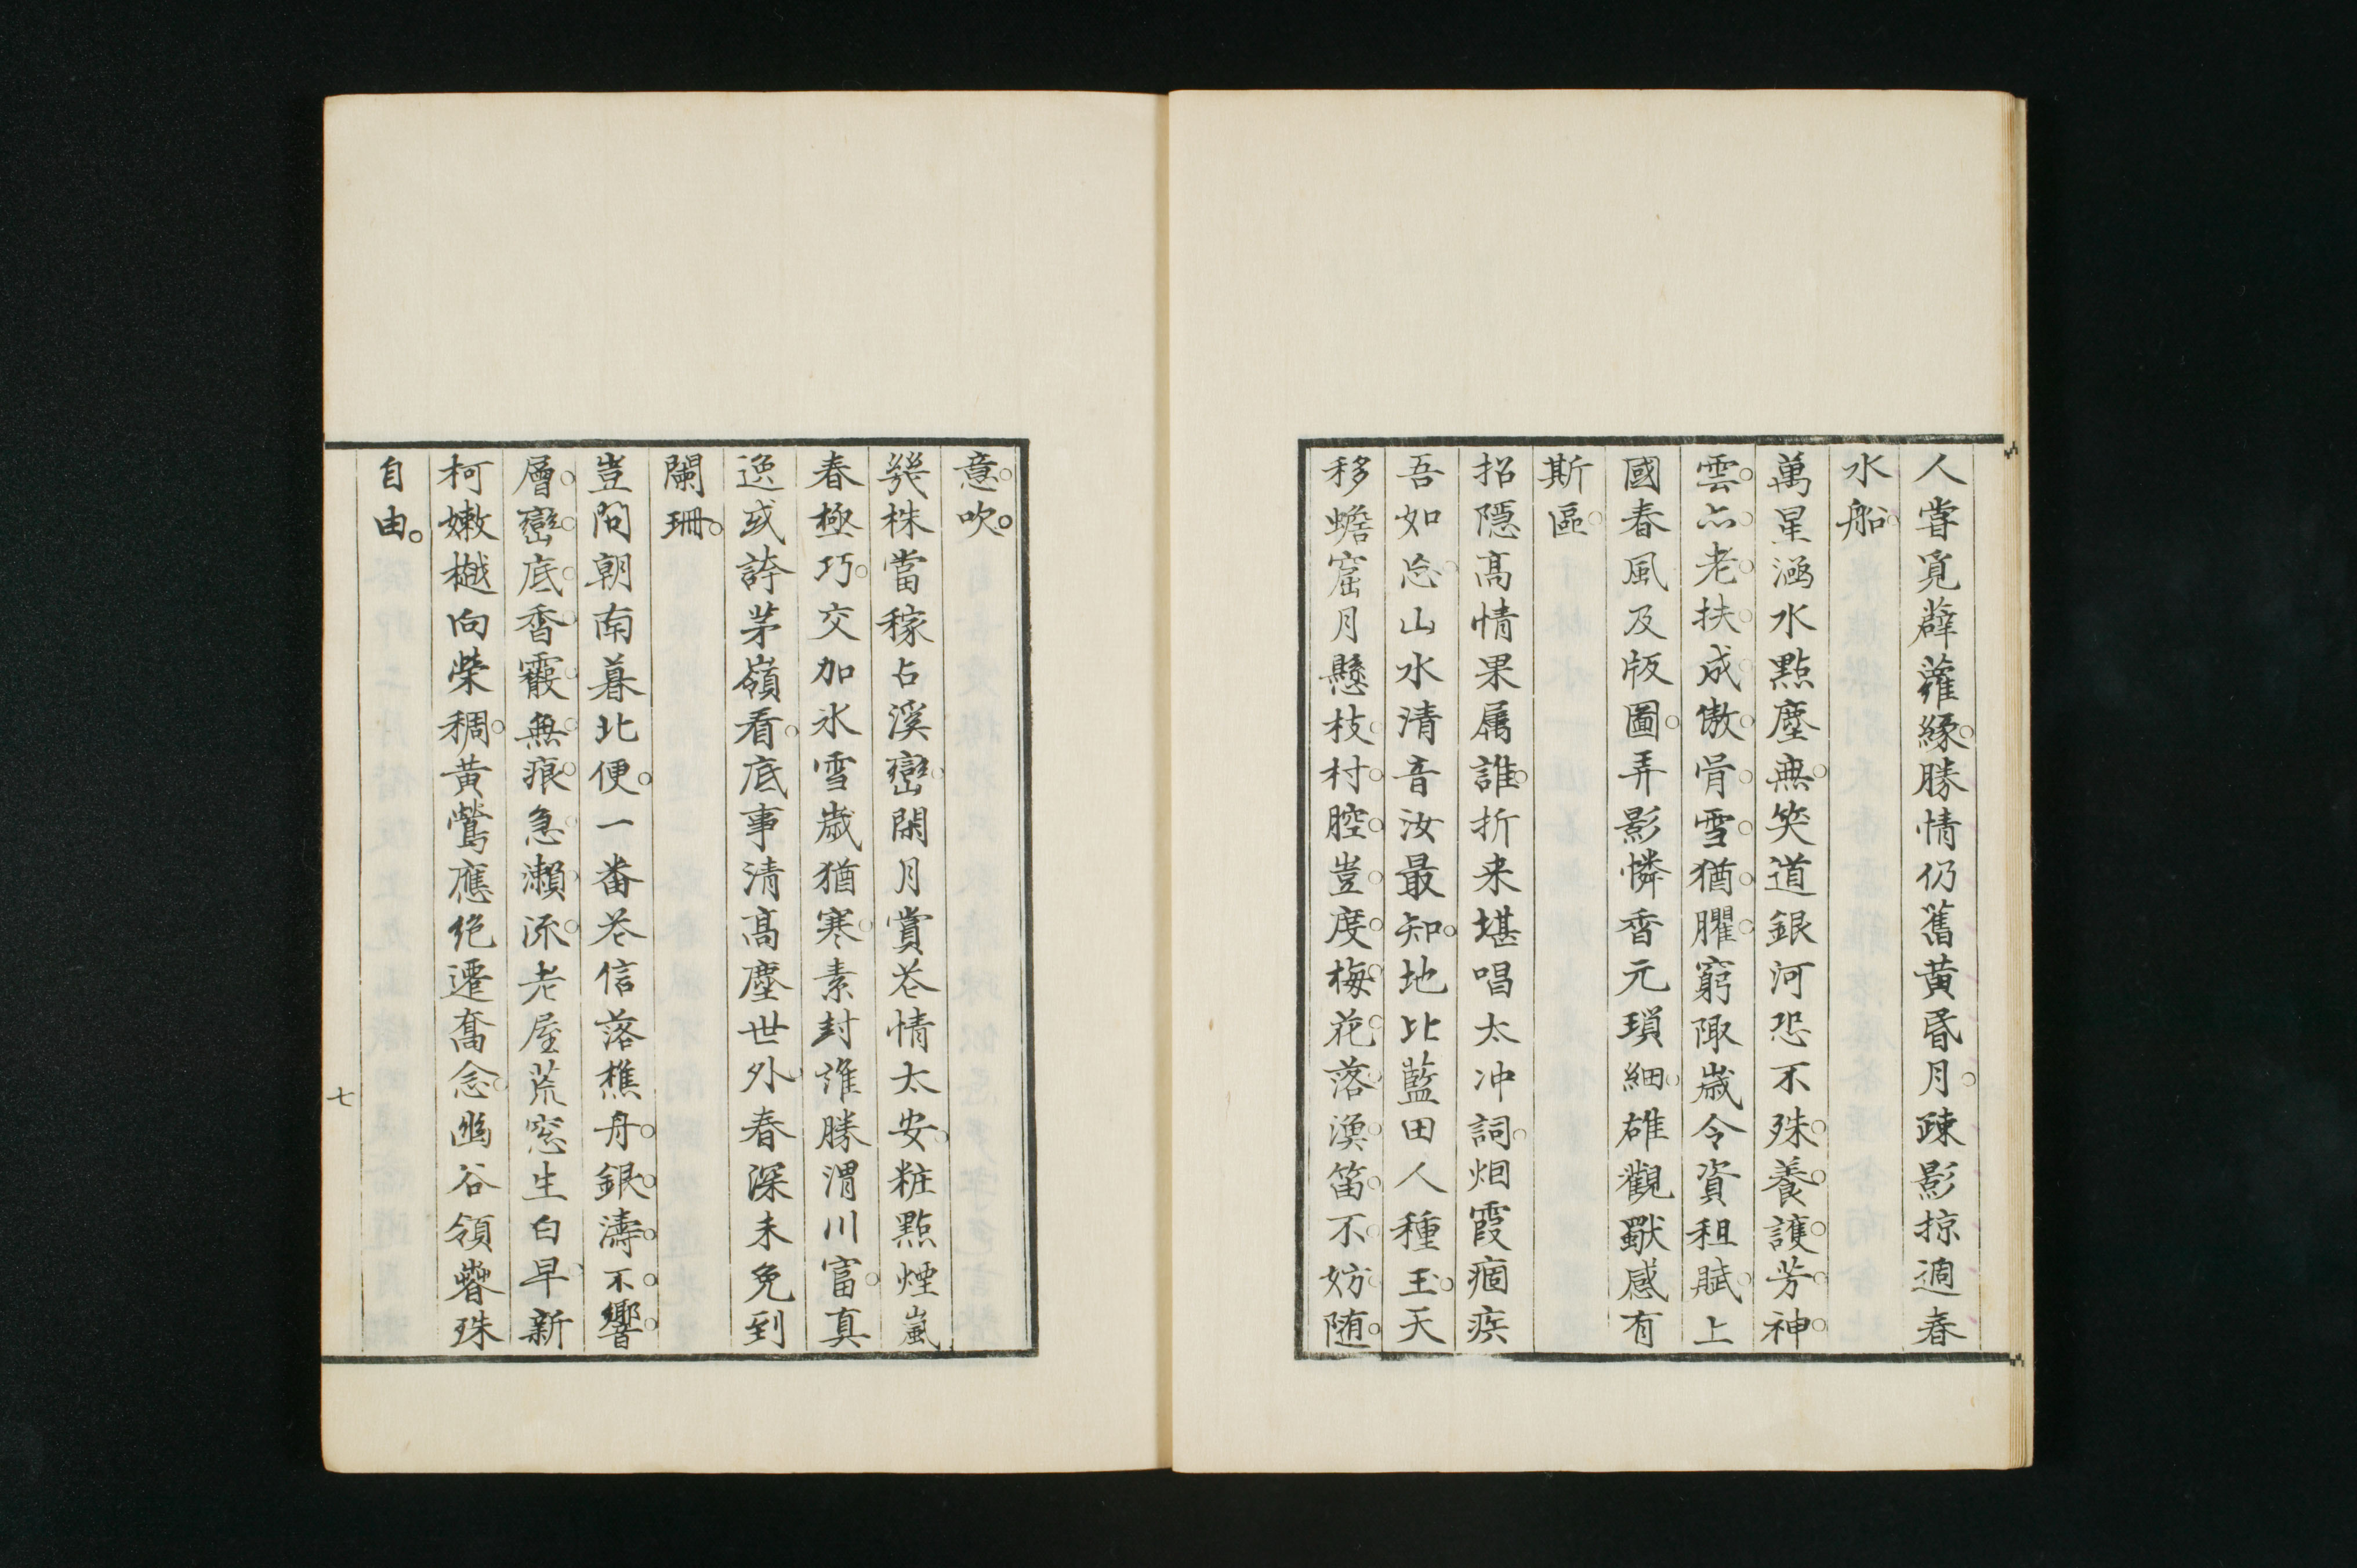 人嘗覓薜蘿緣。勝情仍舊黃昏月。疎影掠過春
水船。
萬星涵水點塵無。笑道銀河恐不殊。養護芳神
雲亦老。扶成傲骨雪猶臞。窮陬歲令資租賦。上
國春風及版圖。弄影憐香元瑣細。雄觀歎感有
斯區。
招隱高情果屬誰。折来堪唱太冲詞。烟霞痼疾
吾如忘。山水清音汝最知。地比藍田人種玉。天
移蟾窟月懸枝。村腔豈度梅花落。漁笛不妨随
意吹。
幾株當稼占溪巒。閑月賞花情太安。粧點煙嵐
春極巧。交加氷雪歲猶寒。素封誰勝渭川富。真
逸或誇茅嶺看。底事清高塵世外。春深未免到
闌珊。
豈問朝南暮北便。一番花信落樵舟。銀濤不響
層巒底。香霰無痕急瀨流。老屋荒窓生白早。新
柯嫩樾向榮稠。黃鶯應絕遷喬念。幽谷領春殊
自由。
七